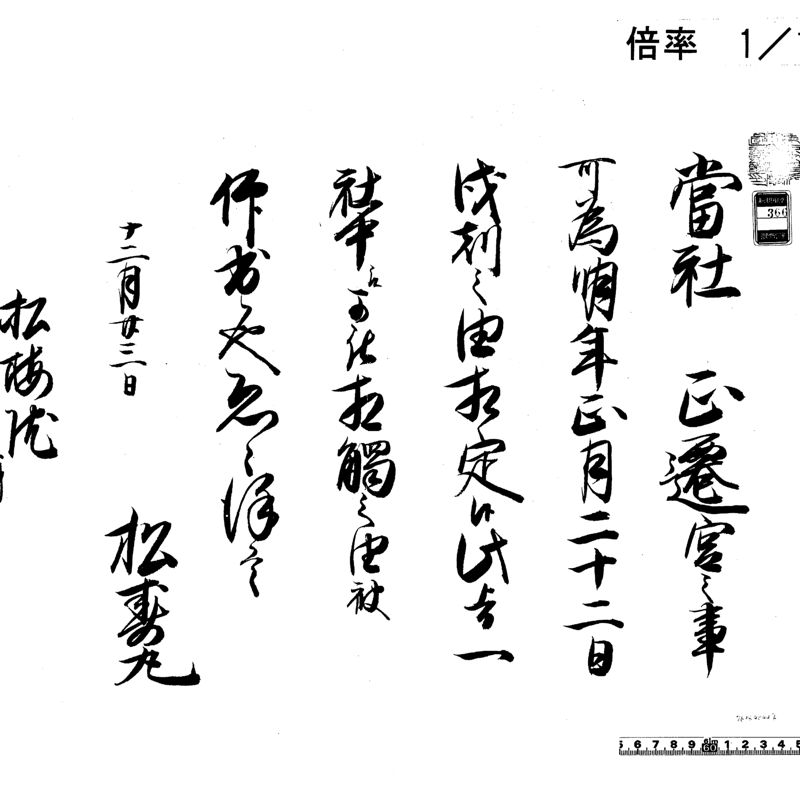 倍率 1/
366
當社 正遷宮之事
可為明年正月二十二日
戌刻之由相定候此旨一
社中江可被相觸之由被
仰出候恐々謹言
十二月廿三日
松壽丸
松梅院
6 7 8 9 1 2 3 4